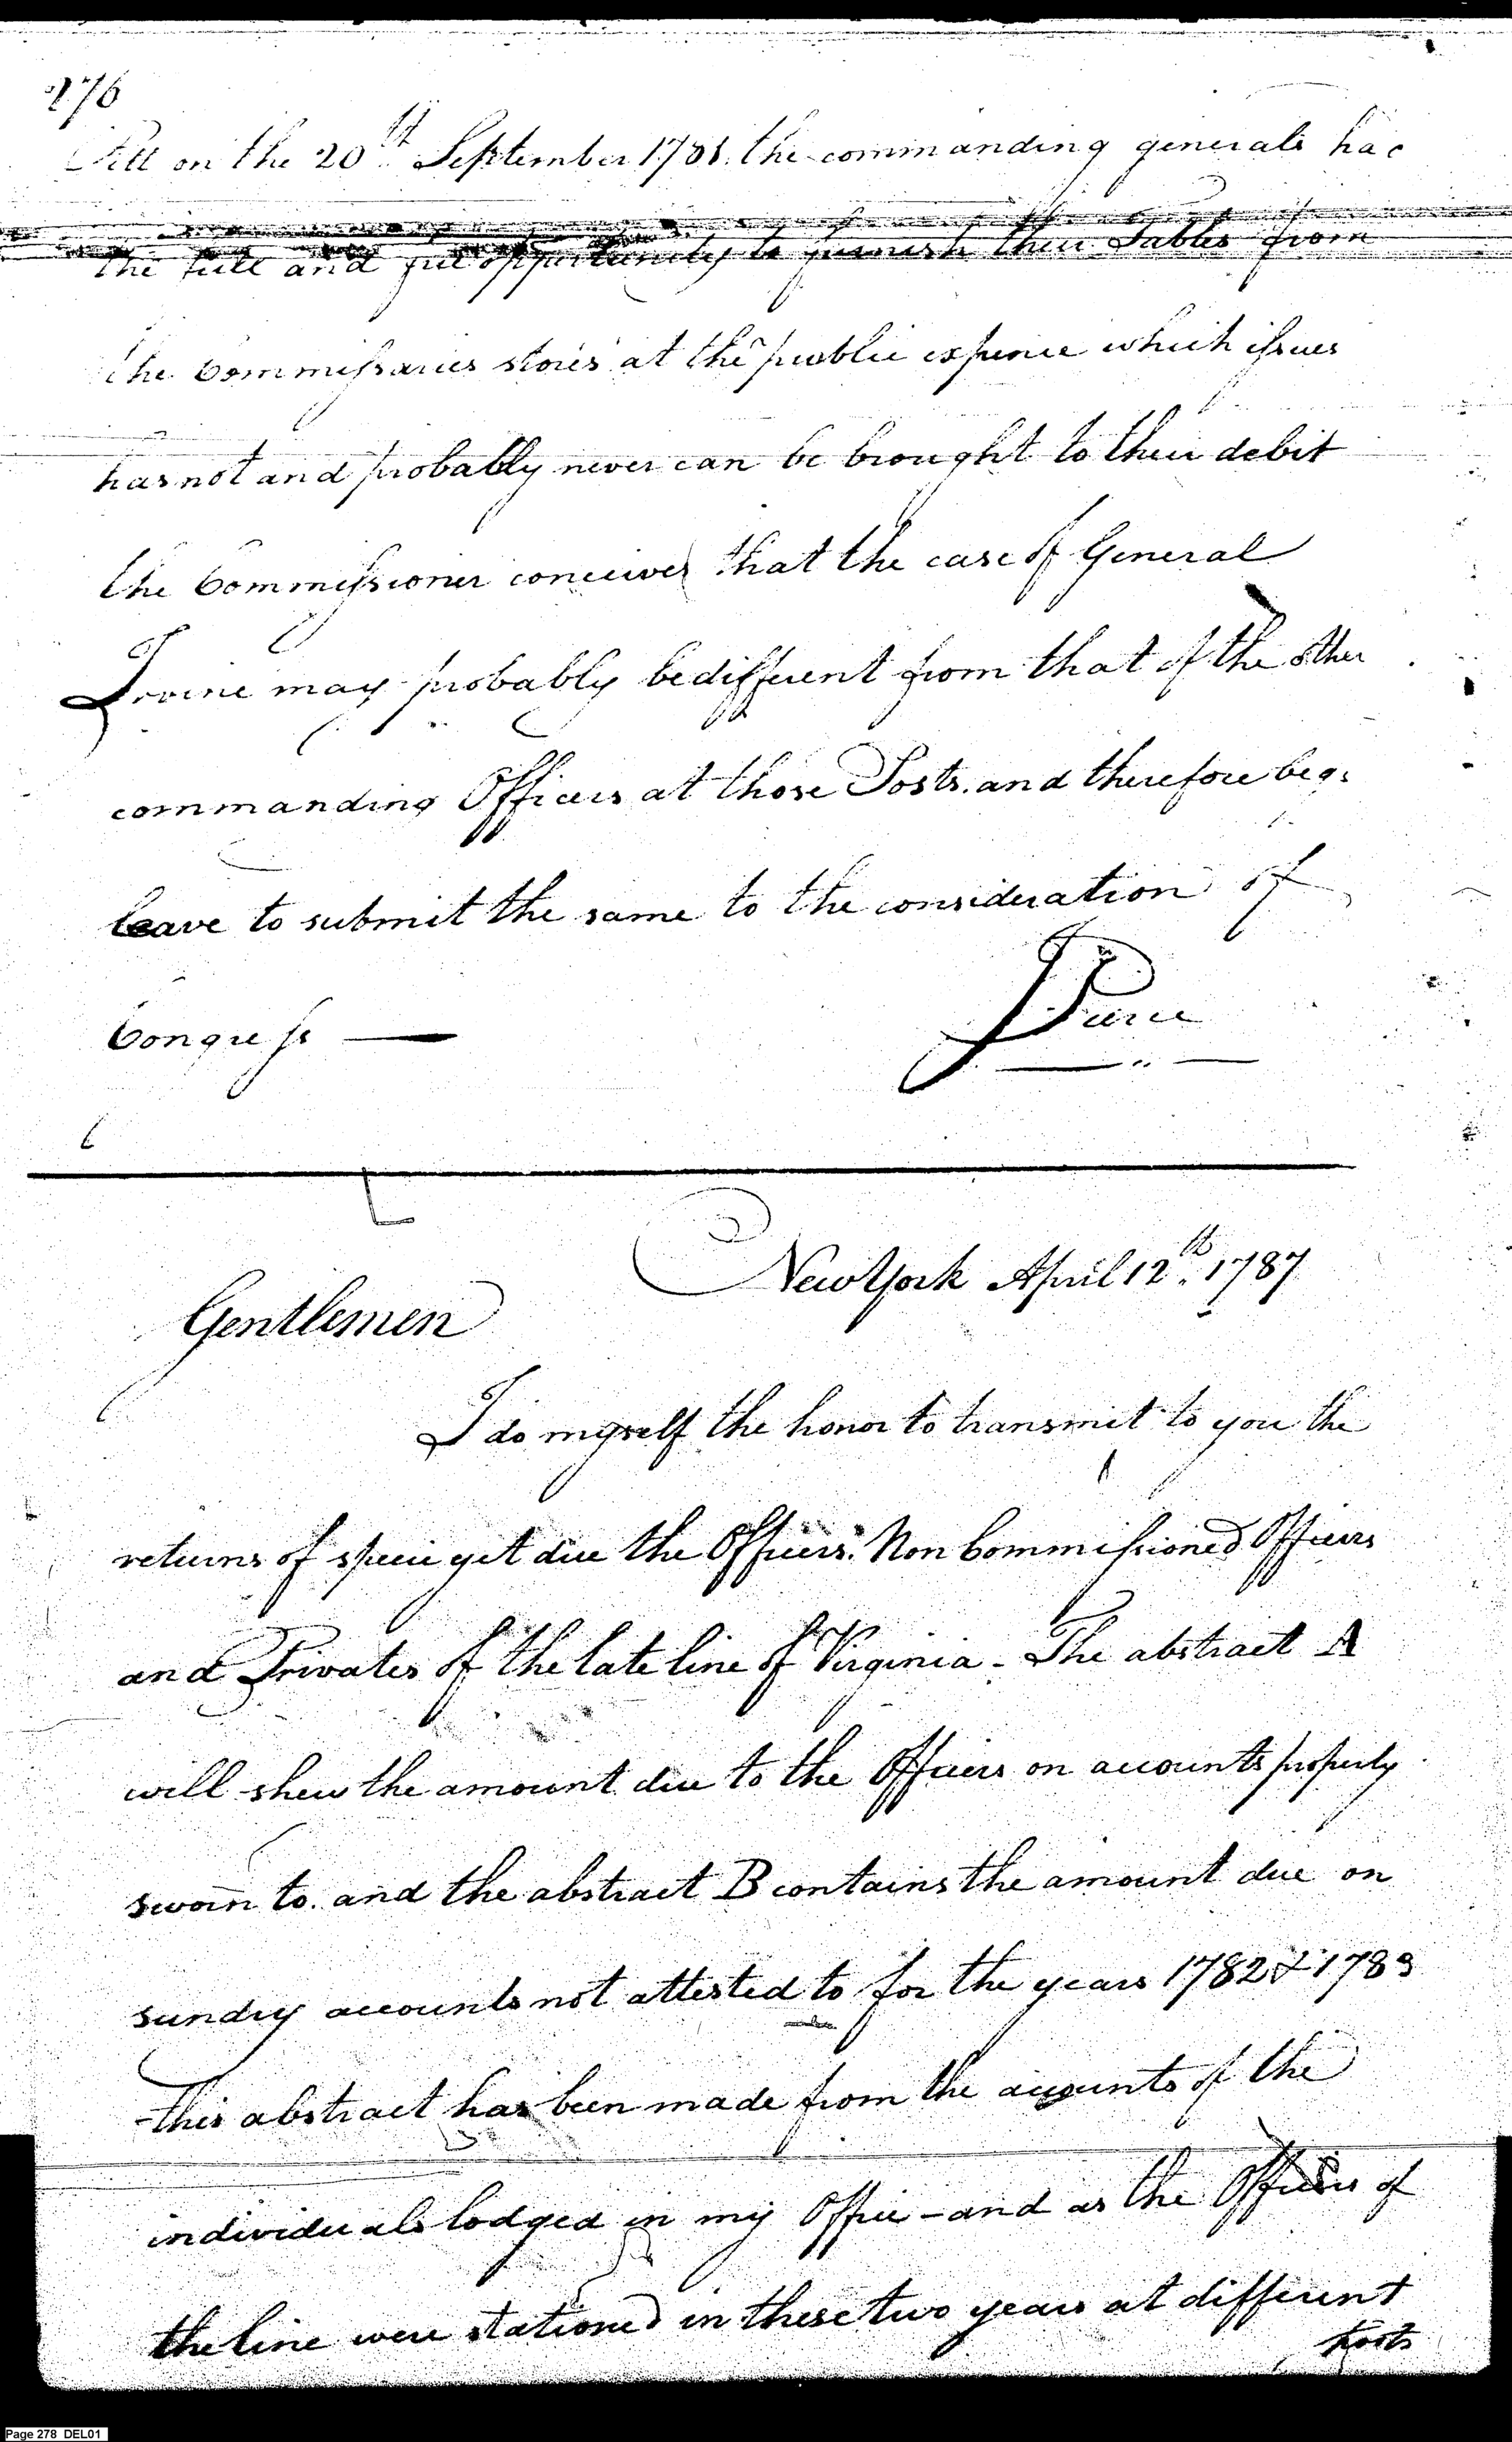 276
Pitt on the 20th September 1781. the commanding generals had
the full and free opportunity to furnish their Tables from
the Commissaries stores at the public expence which issues
has not and probably never can be brought to their debit
the Commissioner conceives that the case of General
Irvine may probably be different from that of the other
commanding Officers at those Posts. and therefore begs
leave to submit the same to the consideration of
Congress — Pierce
New York April 12th. 1787
Gentlemen
I do myself the honor to transmit to you the
returns of specie yet due the Officers. Non Commissioned Officers
and Privates of the late line of Virginia - The abstract A
will shew the amount due to the Officers on accounts properly
sworn to. and the abstract B contains the amount due on
sundry accounts not attested to for the years 1782 & 1783
this abstract has been made from the accounts of the
individuals lodged in my Office - and as the Officers of
the line were stationed in these two years at different
posts
Page 278 DEL01